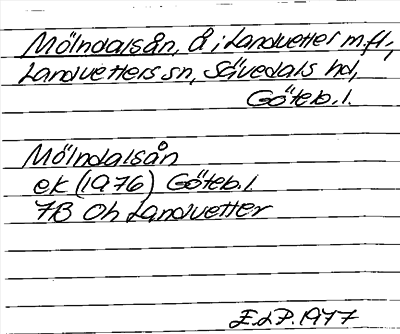 Mölndalsån, å i Landvetter m.fl.,
Landvetters sn, Sävedals hd,
Göteb. l.
Mölndalsån
ek (1976) Göteb. l.
7B 0h Landvetter
E.d P. 1977